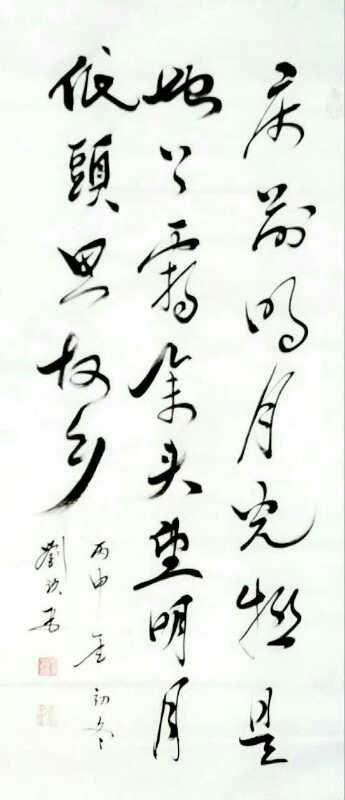 床前明月光疑是
地上霜举头望明月
低頭思故乡
丙申 初冬
劉